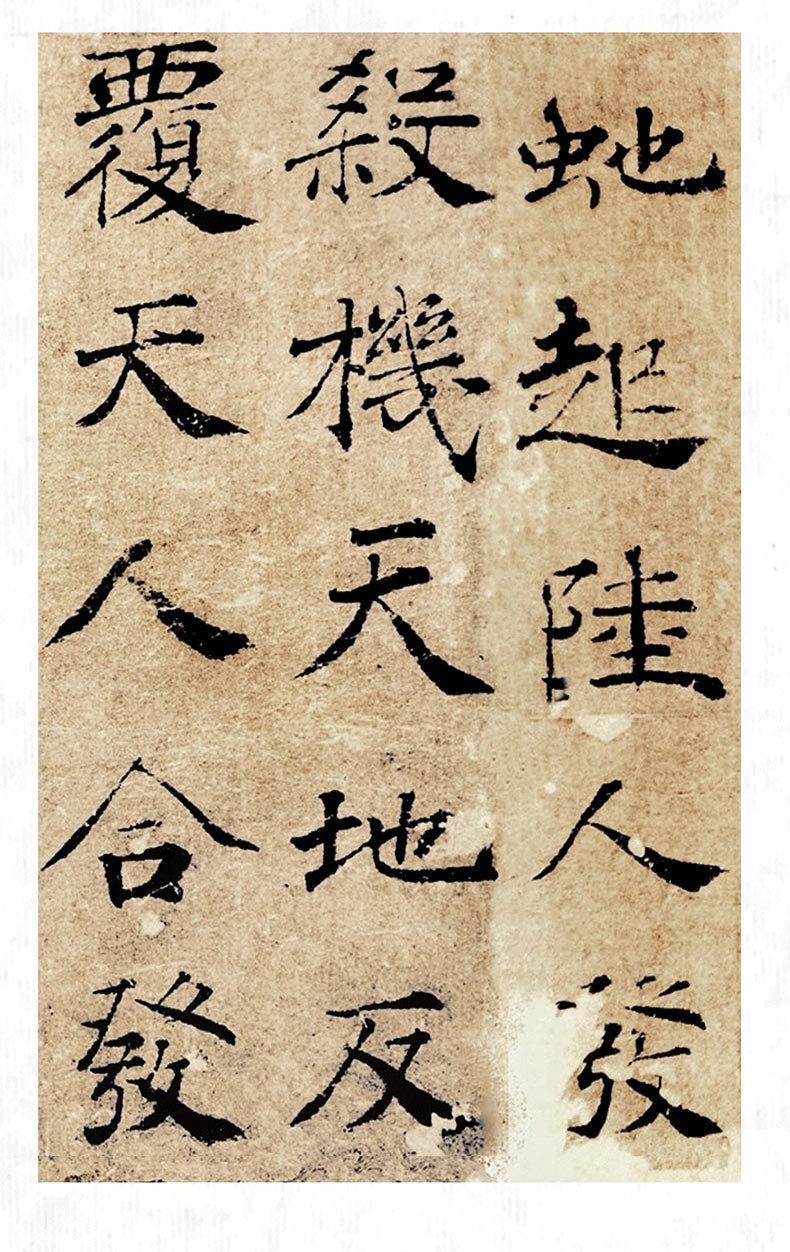 虵起陸人發
殺機天地反
覆天人合發